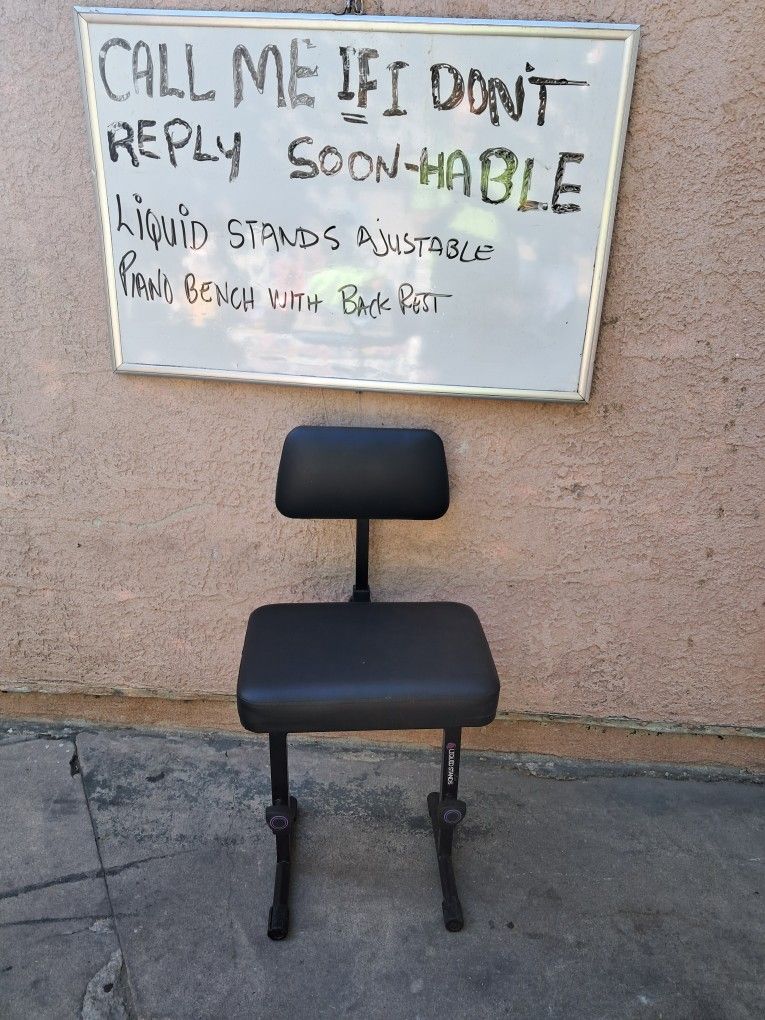 CALL ME IF I DON'T
REPLY SOON-HABLE
LIQUID STANDS AJUSTABLE
PIANO BENCH WITH BACK REST
LIQUID STANDS